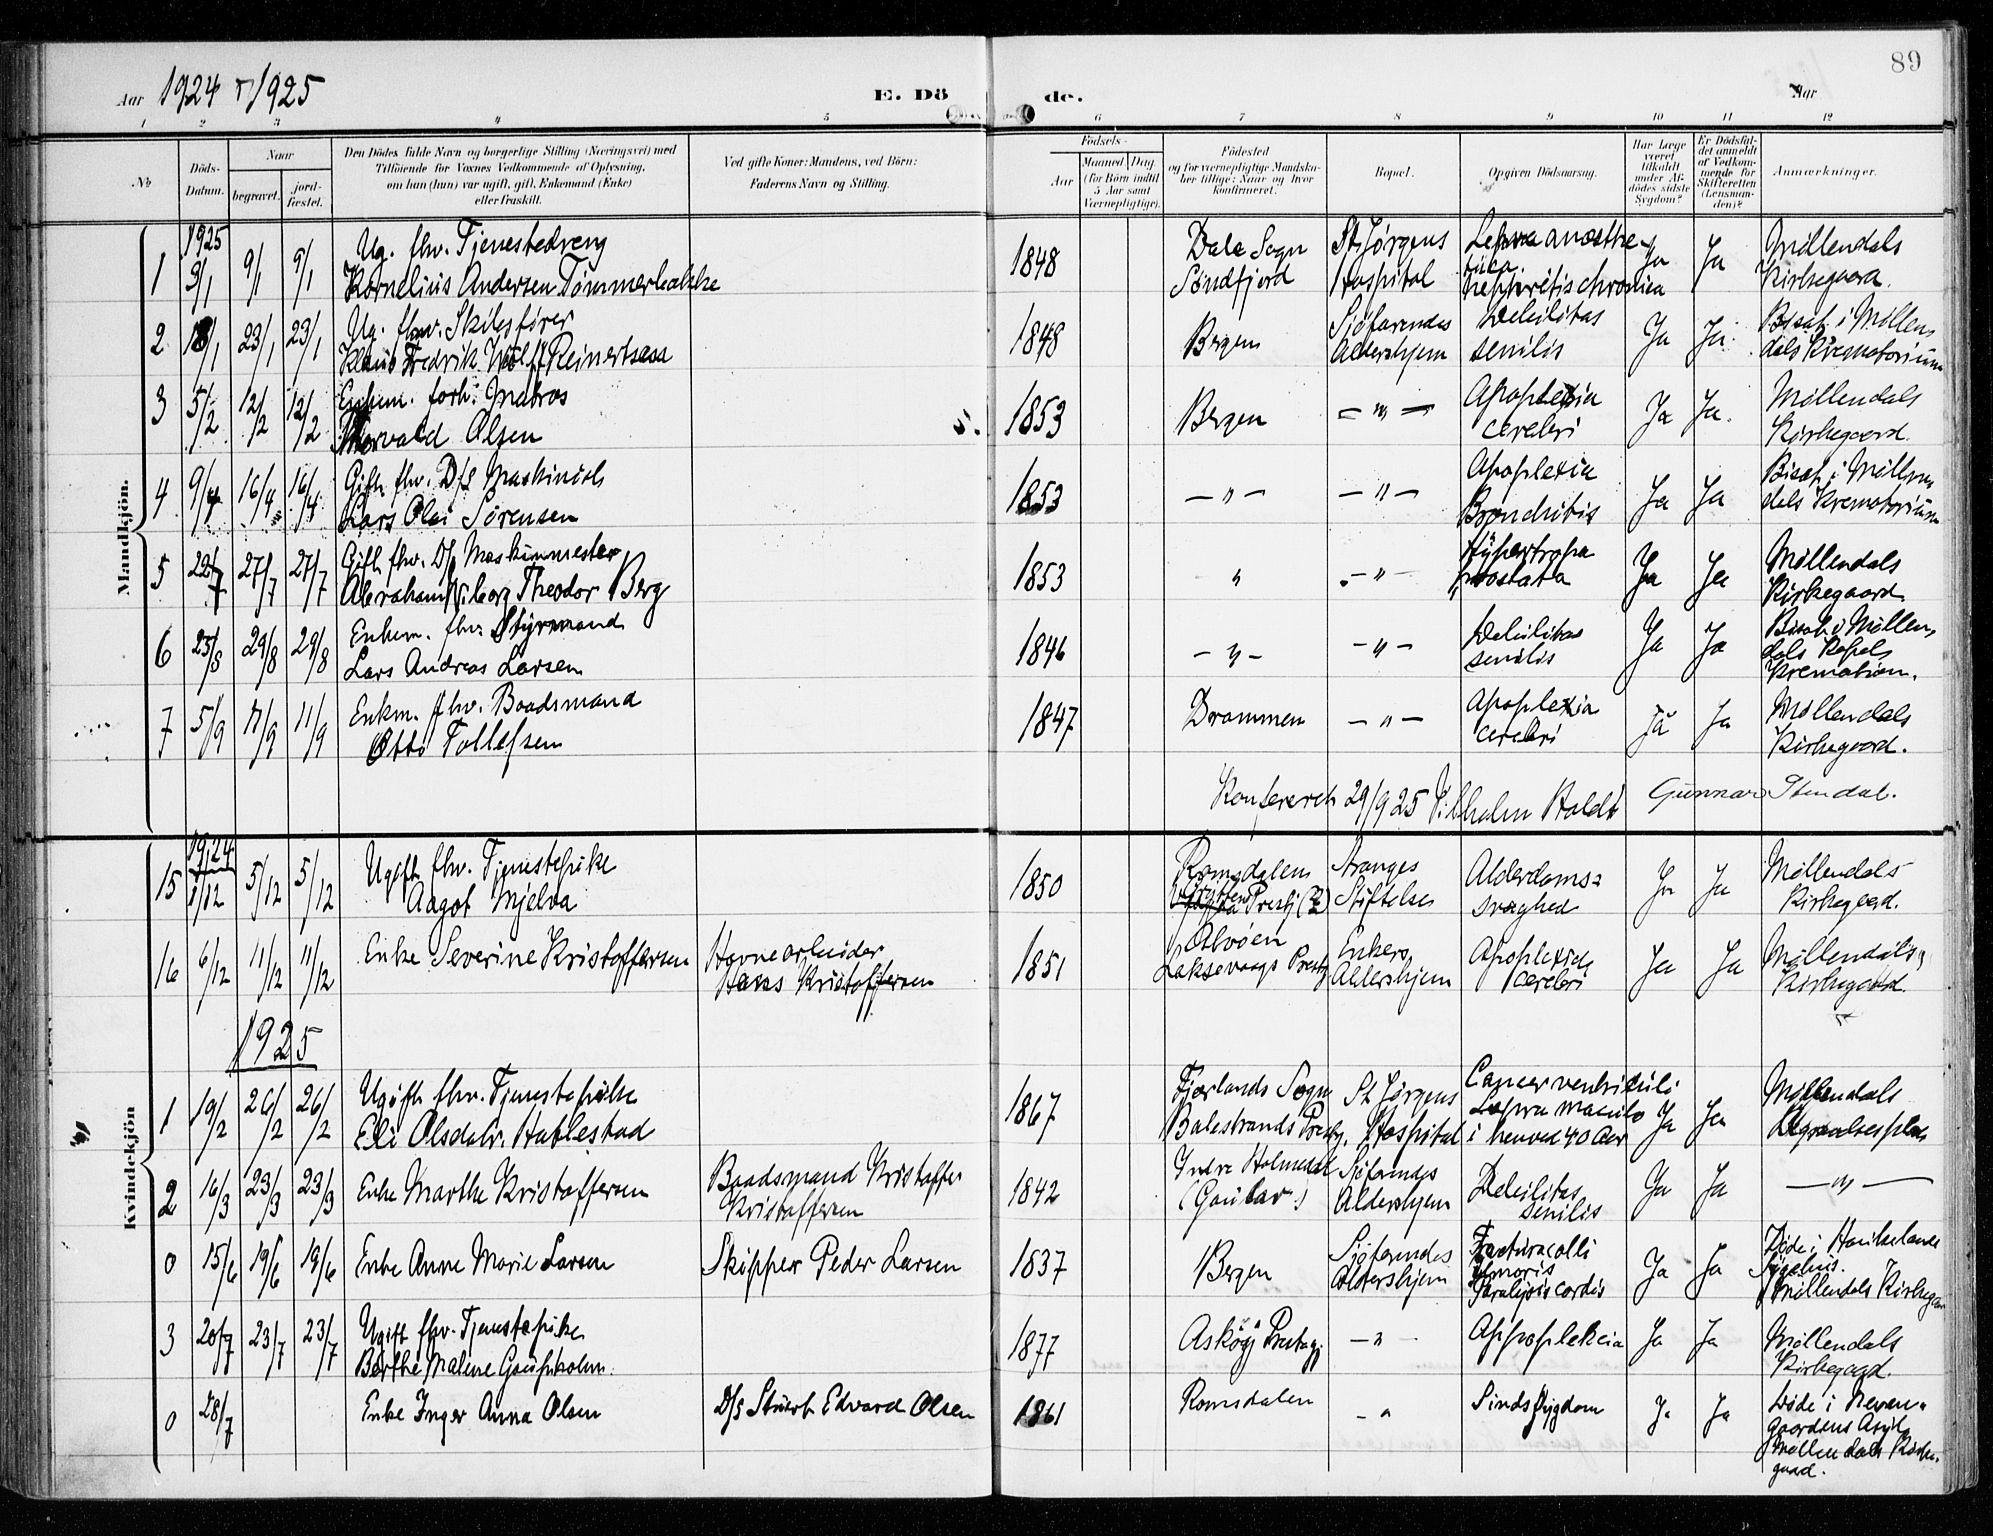 89
Aar 1924 1925
E. Döde.
Aar
1 2 3 4 5 6 7 8 9 10 11 12
No
Döds-Datum.
Naar
begravet.
jord-fæstet.
Den Dödes fulde Navn og borgerlige Stilling (Næringsvei) med
Tilföiende for Voxnes Vedkommende af Oplysning,
om han (hun) var ugift, gift, Enkemand (Enke)
eller fraskilt.
Ved gifte Koner: Mandens, ved Börn:
Faderens Navn og Stilling.
Födsels-
Aar
Maaned Dag
(for Börn indtil
5 Aar samt
Værnepligtige).
Födested
og for værnepligtige Mandska-
ber tillige: Naar og hvor
konfirmeret.
Bopæl.
Opgiven Dödsaarsag.
Har Læge
været
tilkaldt
under Af-
dödes sidste
Sygdom?
Er Dödsfal-
det anmeldt
af Vedkom-
mende for
Skifteretten
(Lensman-
den)?
Anmærkninger.
Mandkjön.
1925
1 9/1 9/1 Ug. fhv. Tjenestedreng
Kornelius Andersen Tømmerbakke
1848 Dale Sogn Søndfjord St. Jørgens Hospital Lepra anæsthetica nephritis chronica Ja Ja Møllendals Kirkegaard.
2 18/1 23/1 23/1 Ug. fhv. Skibsfører
Klaus Fredrik Wolff Reinertsen
1848 Bergen Sjøfarendes Aldershjem Debilitas senilis Ja Ja Bisat i Møllendals Krematorium
3 5/2 12/2 12/2 Enkem. forh. Matros
Thorvald Olsen
1853 Bergen — " — Apoplexia cerebri Ja Ja. Møllendals Kirkegaard.
4 9/4 16/4 16/4 Gift fhv. D/S Maskinist
Lars Olai Sørensen
1853 — " — — " — Apoplexia Bronchitis Ja Ja Bisat i Møllendals Krematorium
5 22/7 27/7 27/7 Gift fhv. D/S Maskinmester
Abraham Theodor Berg
1853 " — " — Hypertropha prostata Ja Ja Møllendals Kirkegaard
6 25/8 29/8 29/8 Enkem. fhv. Styrmand
Lars Andreas Larsen
1846 — " — — " — Debilitas senilis Ja Ja Bisat i Møllendals Kapel Kremation.
7 5/9 11/9 11/9 Enkm. fhv. Baadsmand
Otto Tollefsen
1847 Drammen — " — Apoplexia cerebri Ja Ja Møllendals Kirkegaard.
Konfererert 29/9 25 Vilhelm Holdt Gunnar Stendal.
Kvindekjön
1924
15 1/12 5/12 5/12 Ugift fhv. Tjenestepike
Aagot Mjelva
1850 Romsdalen Prestj. Stranges Stiftelse Alderdomssvaghed Ja Ja Møllendals Kirkegaard.
16 6/12 11/12 11/12 Enke Severine Kristoffersen Havnearbeider
Hans Kristoffersen
1851 Alvøen Laksevaags Prestj. Enkers Aldershjem Apoplexia cerebri Ja Ja Møllendals Kirkegaard.
1925
1 19/2 26/2 26/2 Ugift fhv. Tjenestepike
Eli Olsdatr. Hatlestad
1867 Fjærlands Sogn Balestrands Prestgj. St. Jørgens Hospital Cancer ventriculi Lepra maculo i henved 40 Aar Ja Ja Møllendals Begravelsesplads
2 16/3 23/3 23/3 Enke Marthe Kristoffersen Baadsmand Kristoffer
Kristoffersen
1842 Indre Holmedal (Gaular) Sjøfarendes Aldershjem Debilitas senilis Ja Ja — " —
0 15/6 19/6 19/6 Enke Anne Marie Larsen Skipper Peder Larsen
1837 Bergen Sjøfarendes Aldershjem Fractura colli femoris Paralysis cordis Ja Ja Døde i Haukelands Sygehus. Møllendals Kirkegaard
3 20/7 23/7 23/7 Ugift fhv. Tjenestepike
Berthe Malene Gaupholm.
1877 Askøy Prestegj. — " — Appoplekcia Ja Ja Møllendals Kirkegaard.
0 28/7 Enke Inger Anna Olsen D/S Stuert Edvard Olsen
1861 Romsdalen — " Sindssygdom Ja Ja Døde i Neevengaardens Asyl Møllendals Kirkegaard.